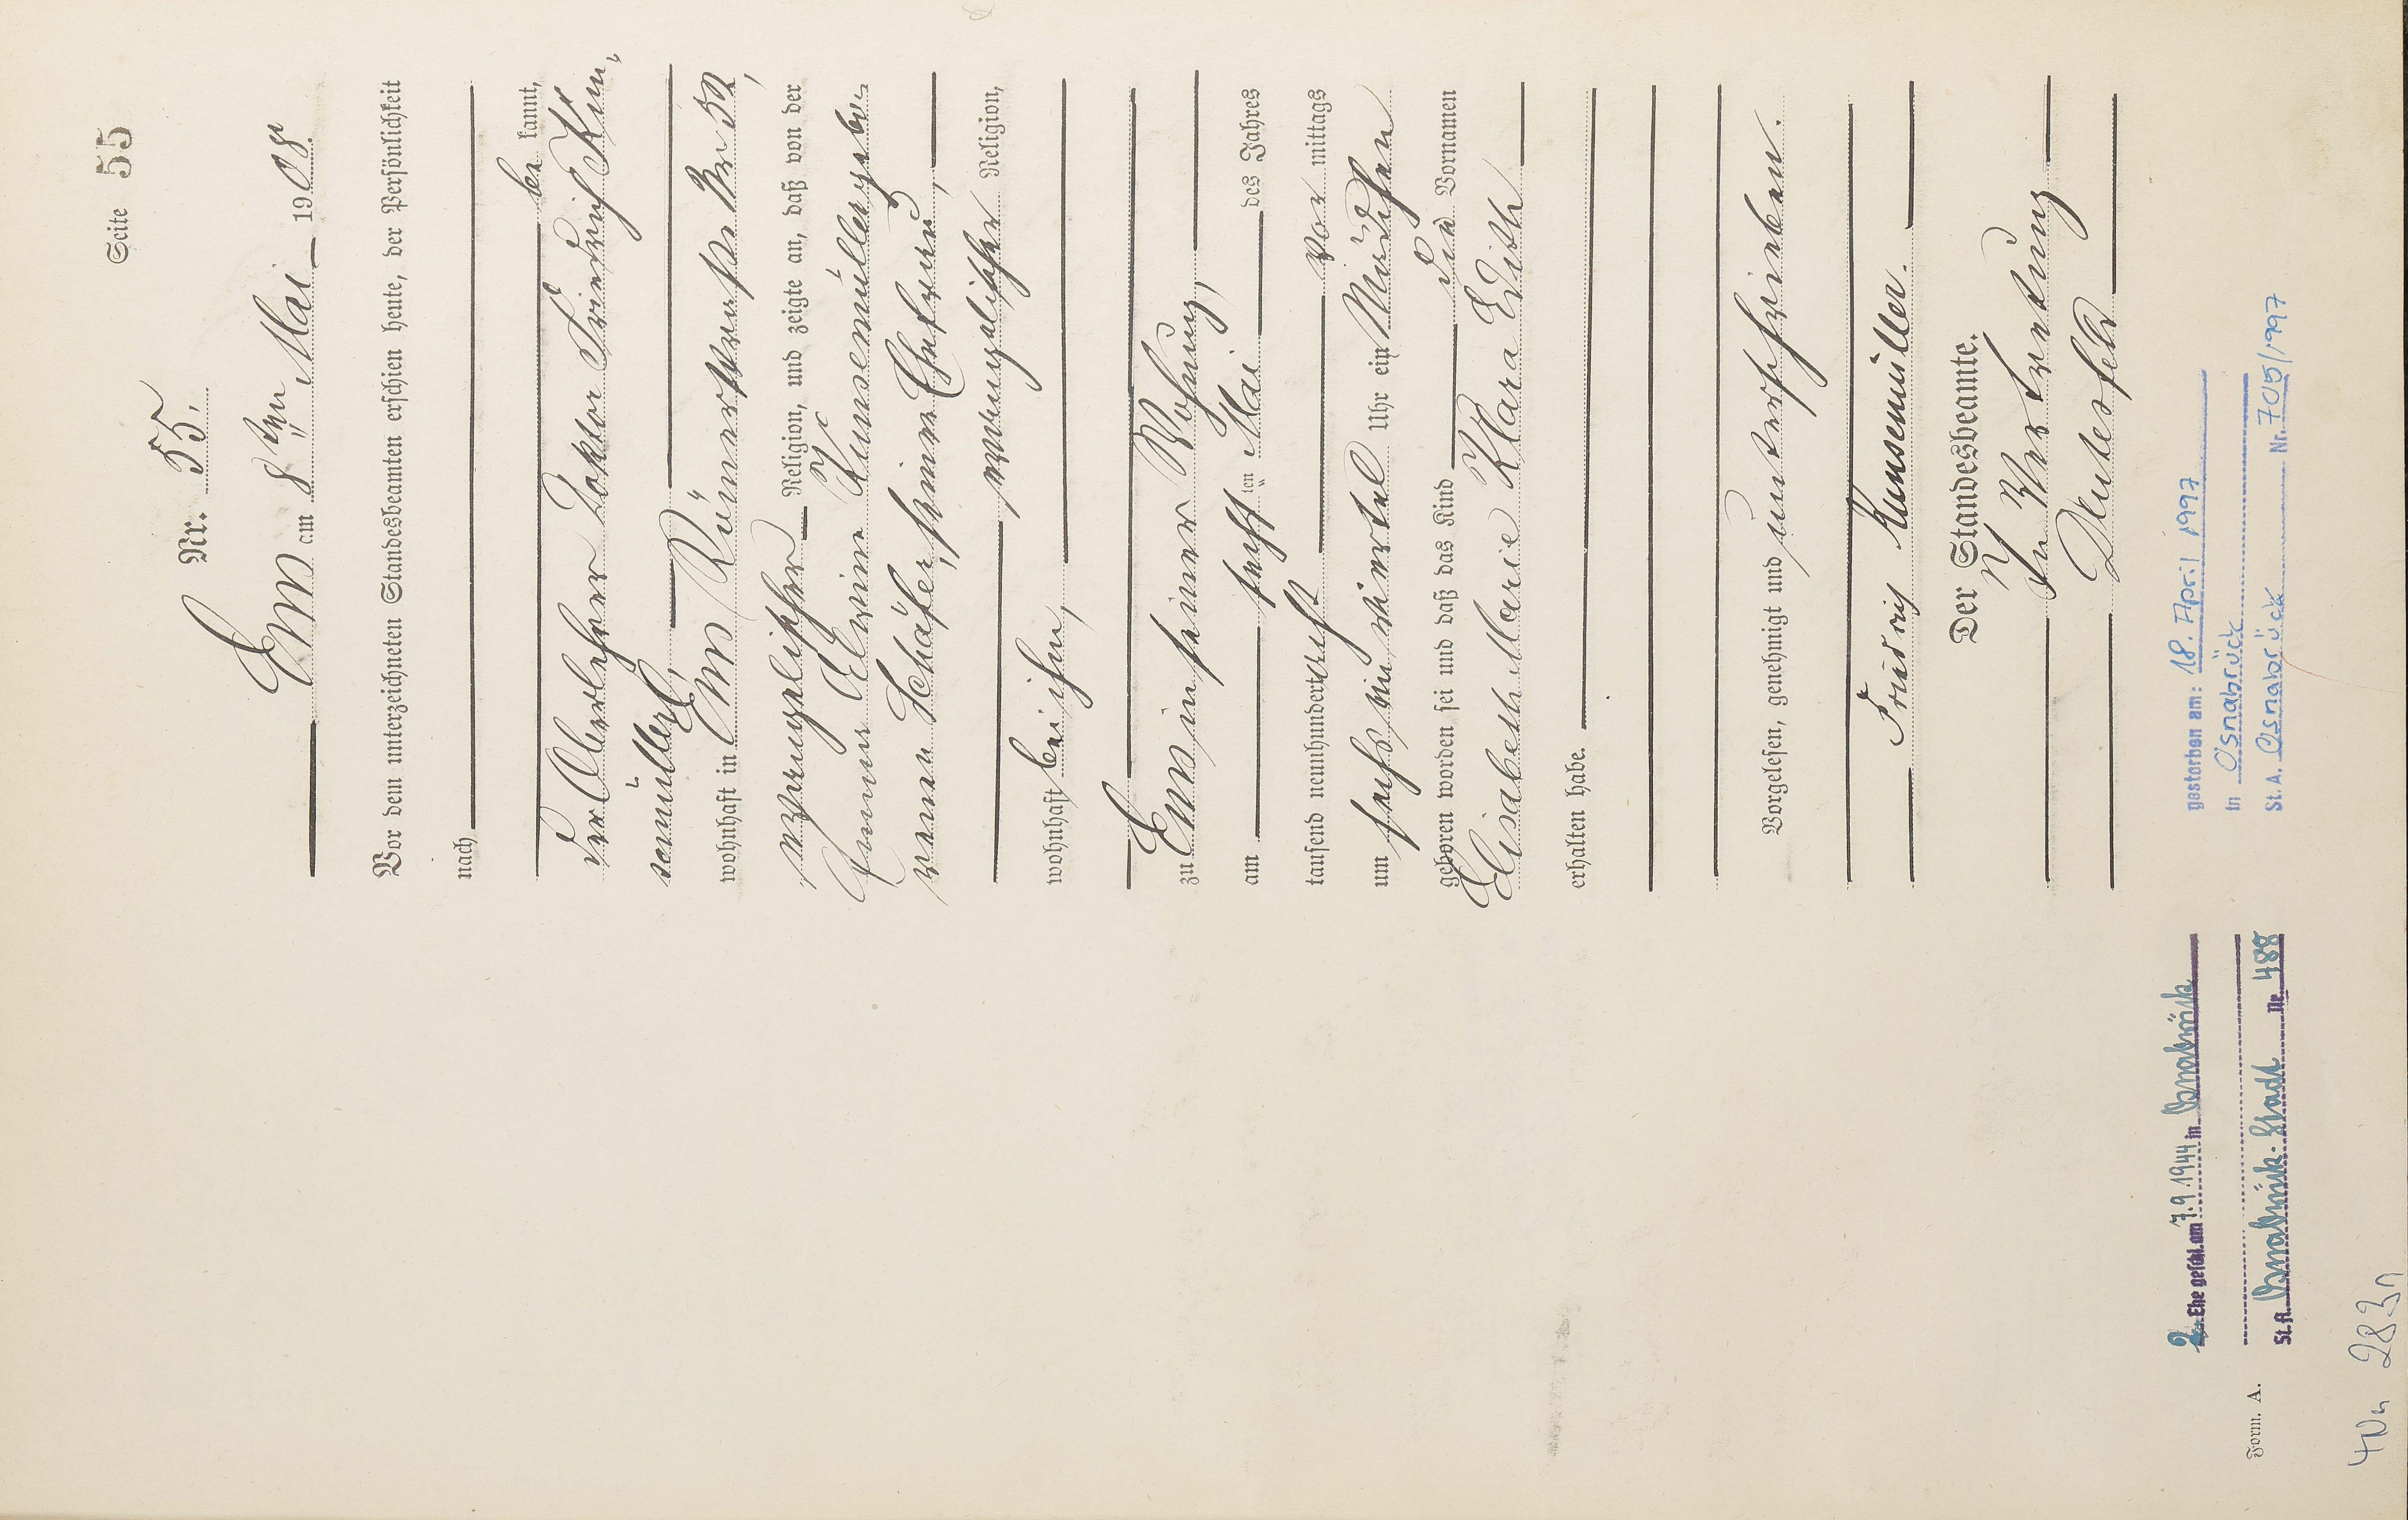 Seite 55
Nr. 55.
Ems am 8ten Mai 1908.
Vor dem unterzeichneten Standesbeamten erschien heute, der Persönlichkeit
nach
be kannt,
der Oberlehrer Doktor Friedrich Kun-
semüller,
wohnhaft in Ems, Römerstrasse Nr 52,
evangelischer Religion, und zeigte an, daß von der
Kunsemüller gebo-
renen Schäfer, seiner Ehefrau,
evangelischer Religion,
wohnhaft bei ihm,
zu Ems in seiner Wohnung,
am sechsten Mai des Jahres
tausend neunhundert acht vor mittags
um sechs ein viertel Uhr ein Mädchen
geboren worden sei und daß das Kind die Vornamen
Elisabeth Marie Klara Edith
erhalten habe.
Vorgelesen, genehmigt und unterschrieben.
Friedrich Kunsemüller.
Der Standesbeamte.
In Vertretung
gestorben am: 18. April 1997
in Osnabrück
St. A. Osnabrück Nr. 705/1997
2. Ehe geschl. am 7.9.1944 in Osnabrück
St. A. Osnabrück-Stadt Nr. 488
Form. A.